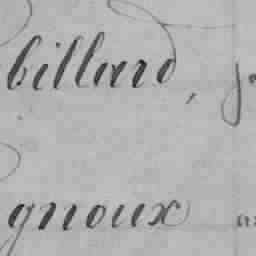 billard,
gnoux